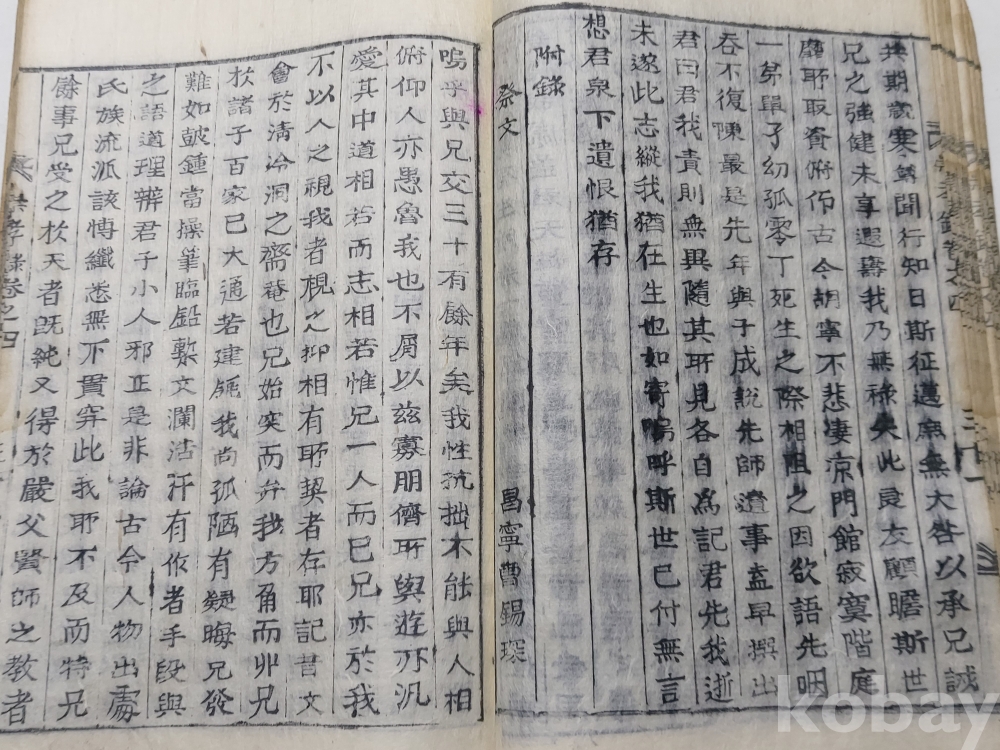 共期歲寒轉聞行知日斯征邁庶無大咎以承兄誠
兄之強健未享遐壽我乃無祿失此良友顧瞻斯世
廳耶取資俯仰古今胡寧不悲凄凉門館寂寞階庭
一第單孑幼孤零丁死生之際相阻之因欲語先咽
吞不復陳最是先年與子成說先師遺事盍早撰出
君曰君我責則無異隨其所見各自爲記君先我逝
未遂此志縱我猶在生也如寄嗚呼斯世已付無言
想君泉下遺恨猶存
附錄
祭文 昌寧曹錫琛
嗚乎與兄交三十有餘年矣我性抗拙不能與人相
俯仰人亦愚魯我也不屑以玆寡朋儕所與遊亦汎
愛其中道相若而志相若惟兄一人而已兄亦於我
不以人之視我者視之抑相有所契者存耶記昔文
會於淸冷洞之齋菴也兄始突而弁我方角而丱兄
於諸子百家已大通若建瓴我尚孤陋有疑晦兄發
難如皷鍾當操筆臨鉛槧文瀾沽汗有作者手段與
之語道理辨君子小人邪正是非論古今人物出處
氏族流派該愽纖悉無不貫穿此我所不及而特兄
餘事兄受之於天者旣純又得於嚴父賢師之教者
孝錄卷之四
三十一
kobay